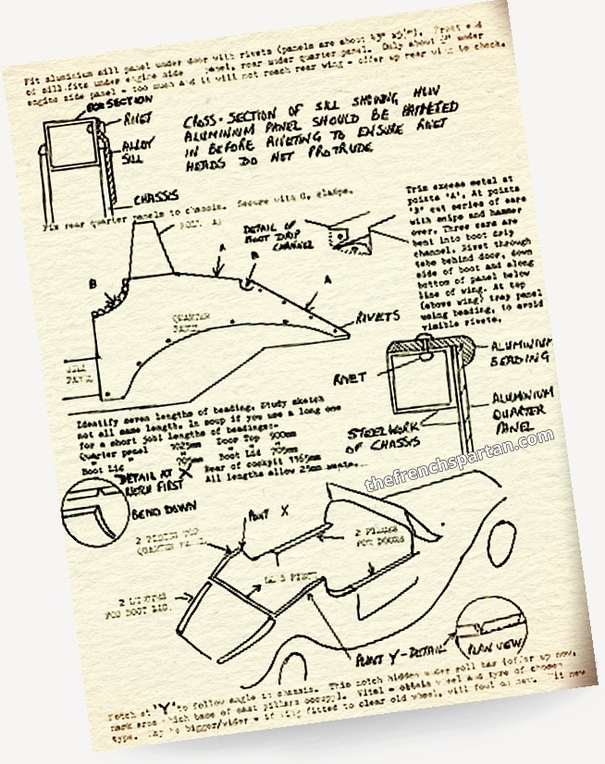 Fit aluminium sill panel under door with rivets (panels are about 43" x5½"). Front end
of sill fits under engine side panel, rear under quarter panel. Only about ½" under
engine side panel - too much and it will not reach rear wing - offer up rear wing to check.
BOX SECTION
RIVET
ALLOY
SILL
CHASSIS
CROSS-SECTION OF SILL SHOWING HOW
ALUMINIUM PANEL SHOULD BE HAMMERED
IN BEFORE RIVETING TO ENSURE RIVET
HEADS DO NOT PROTRUDE
Fix rear quarter panels to chassis. Secure with G. clamps.
DETAIL OF
BOOT DRIP
CHANNEL
A
B
A
B
RIVETS
QUARTER
PANEL
SILL
PANEL
Trim excess metal at
points 'A'. At points
'B' cut series of ears
with snips and hammer
over. Three ears are
bent into boot drip
channel. Rivet through
tube behind door, down
side of boot and along
bottom of panel below
line of wing. At top
(above wing) trap panel
using beading, to avoid
visible rivets.
ALUMINIUM
BEADING
RIVET
ALUMINIUM
QUARTER
PANEL
STEELWORK
OF CHASSIS
Identify seven lengths of beading. Study sketch
not all same length. In soup if you use a long one
for a short job! lengths of beading:-
Quarter panel 1025mm Door Top 900mm
Boot Lid 705mm Boot Lid 705mm
Rear of cockpit 1365mm
All lengths allow 25mm waste.
thefrenchspartan.com
DETAIL AT X
WORK FIRST
BEND DOWN
POINT X
2 PIECES TOP
QUARTER PANEL
2 PIECES
FOR DOORS
2 LENGTHS
FOR BOOT LID.
POINT Y - DETAIL
PLAN VIEW
Notch at 'Y' to follow angle in chassis. This notch hidden under roll bar (offer up now,
mark area which base of cast pillars occupy). Vital - obtain wheel and tyre of chosen
type. May be bigger/wider - if wing fitted to clear old wheel, will foul on new. Fit new